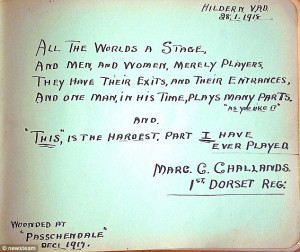 HILDERN. V.A.D.
28.1.1918.
ALL THE WORLDS A STAGE,
AND MEN, AND WOMEN, MERELY PLAYERS,
THEY HAVE THEIR EXITS, AND THEIR ENTRANCES,
AND ONE MAN, IN HIS TIME, PLAYS MANY PARTS.
"AS YOU LIKE IT"
AND.
"THIS", IS THE HARDEST, PART I HAVE
EVER PLAYED.
MARC. C. CHALLANDS.
1ST DORSET REG:
WOUNDED AT
"PASSCHENDALE"
DEC 1, 1917.
© newsteam